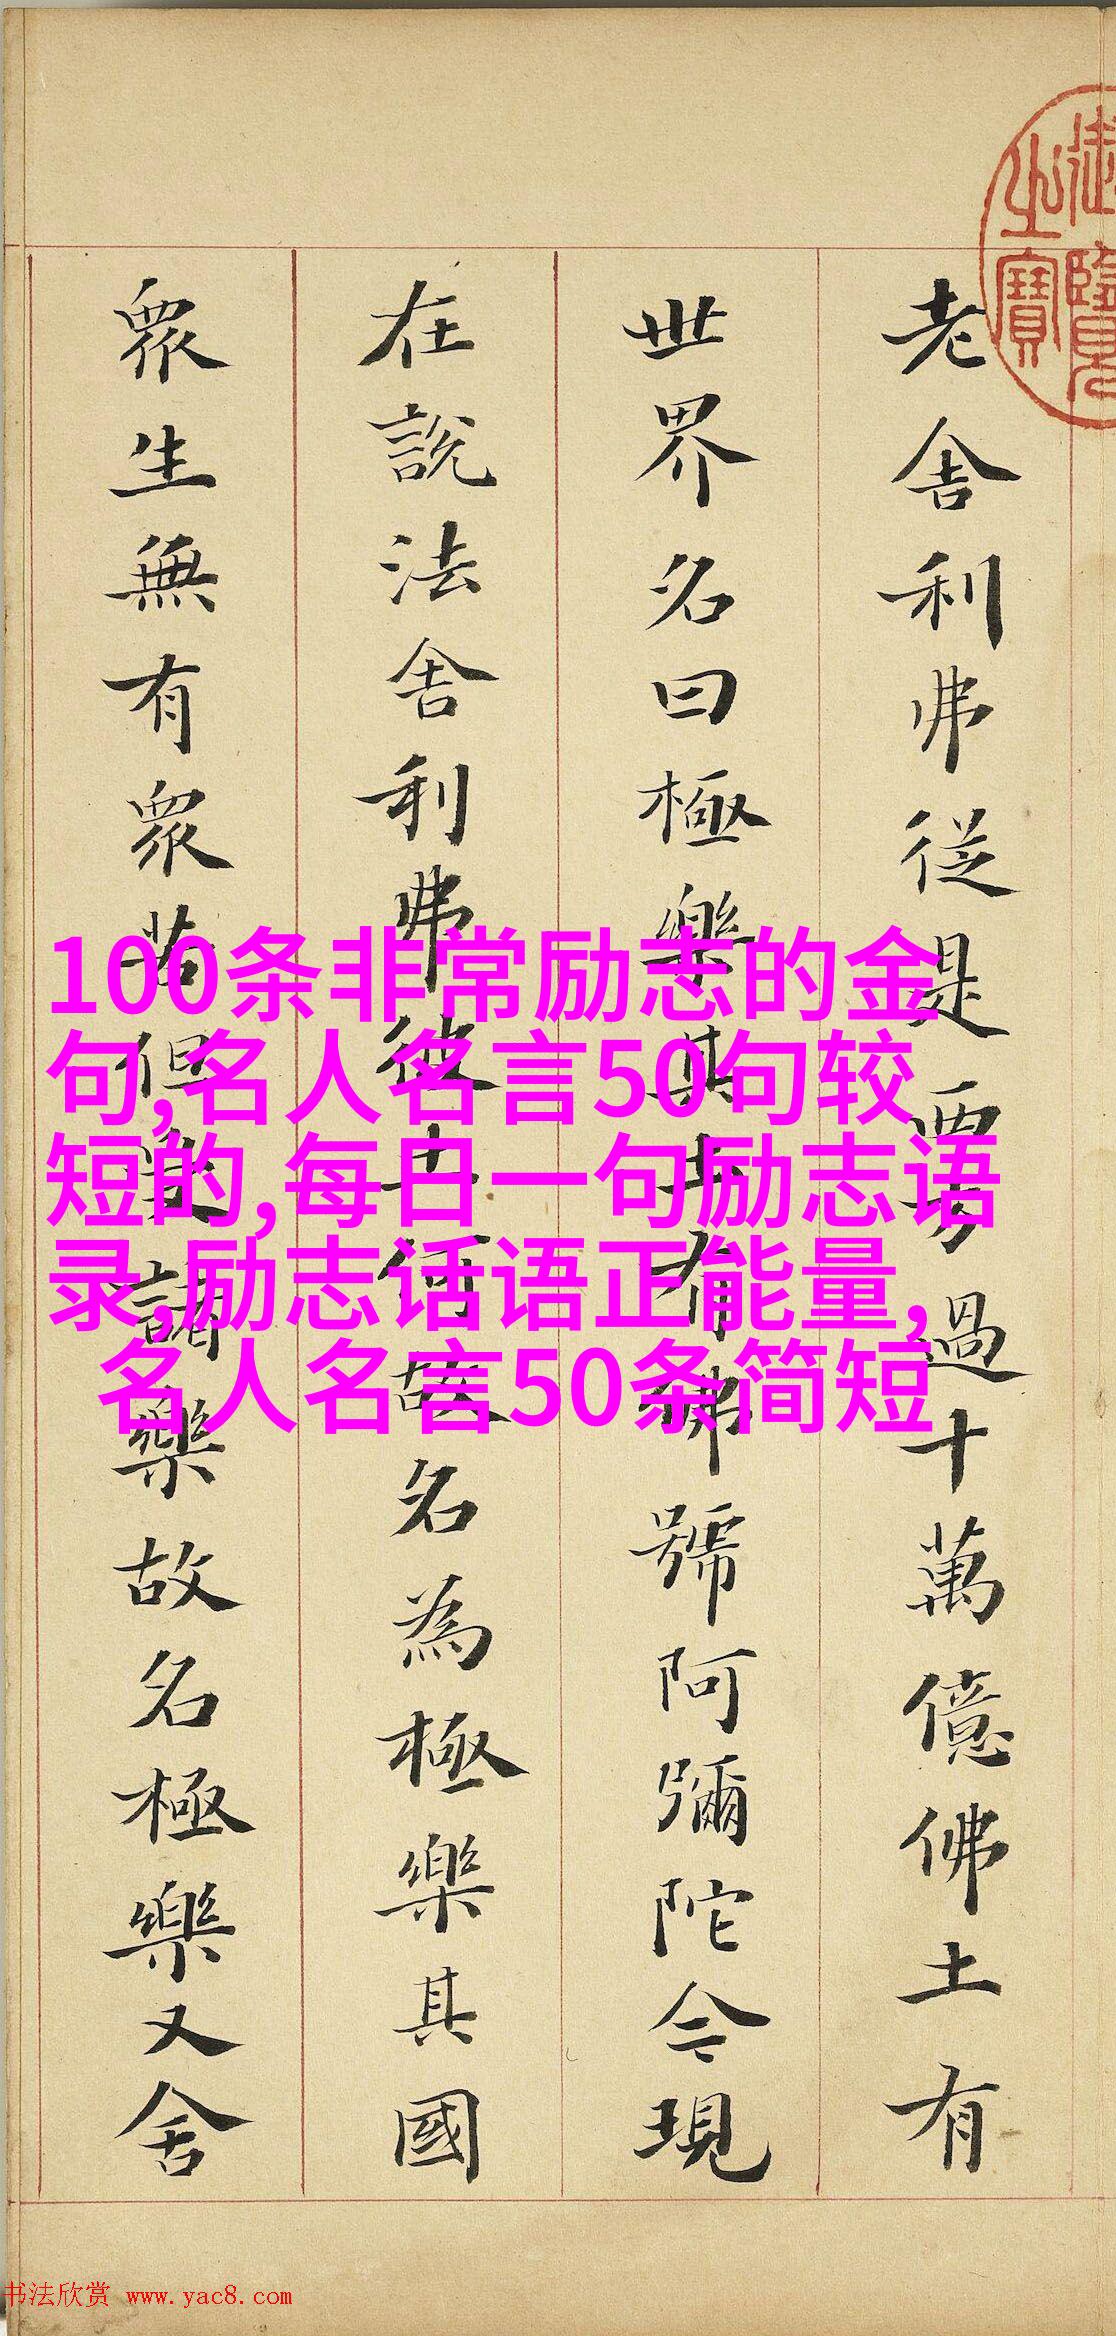 老舍利弗從是西方過十萬億佛土有
世界名曰極樂其土有佛號阿彌陀今現
在說法舍利弗彼土何故名為極樂其國
眾生無有眾苦但受諸樂故名極樂又舍
御覽
之寶
100条非常励志的金
句,名人名言50句较
短的,每日一句励志语
录,励志话语正能量,
名人名言50条简短
书法欣赏 www.yac8.com